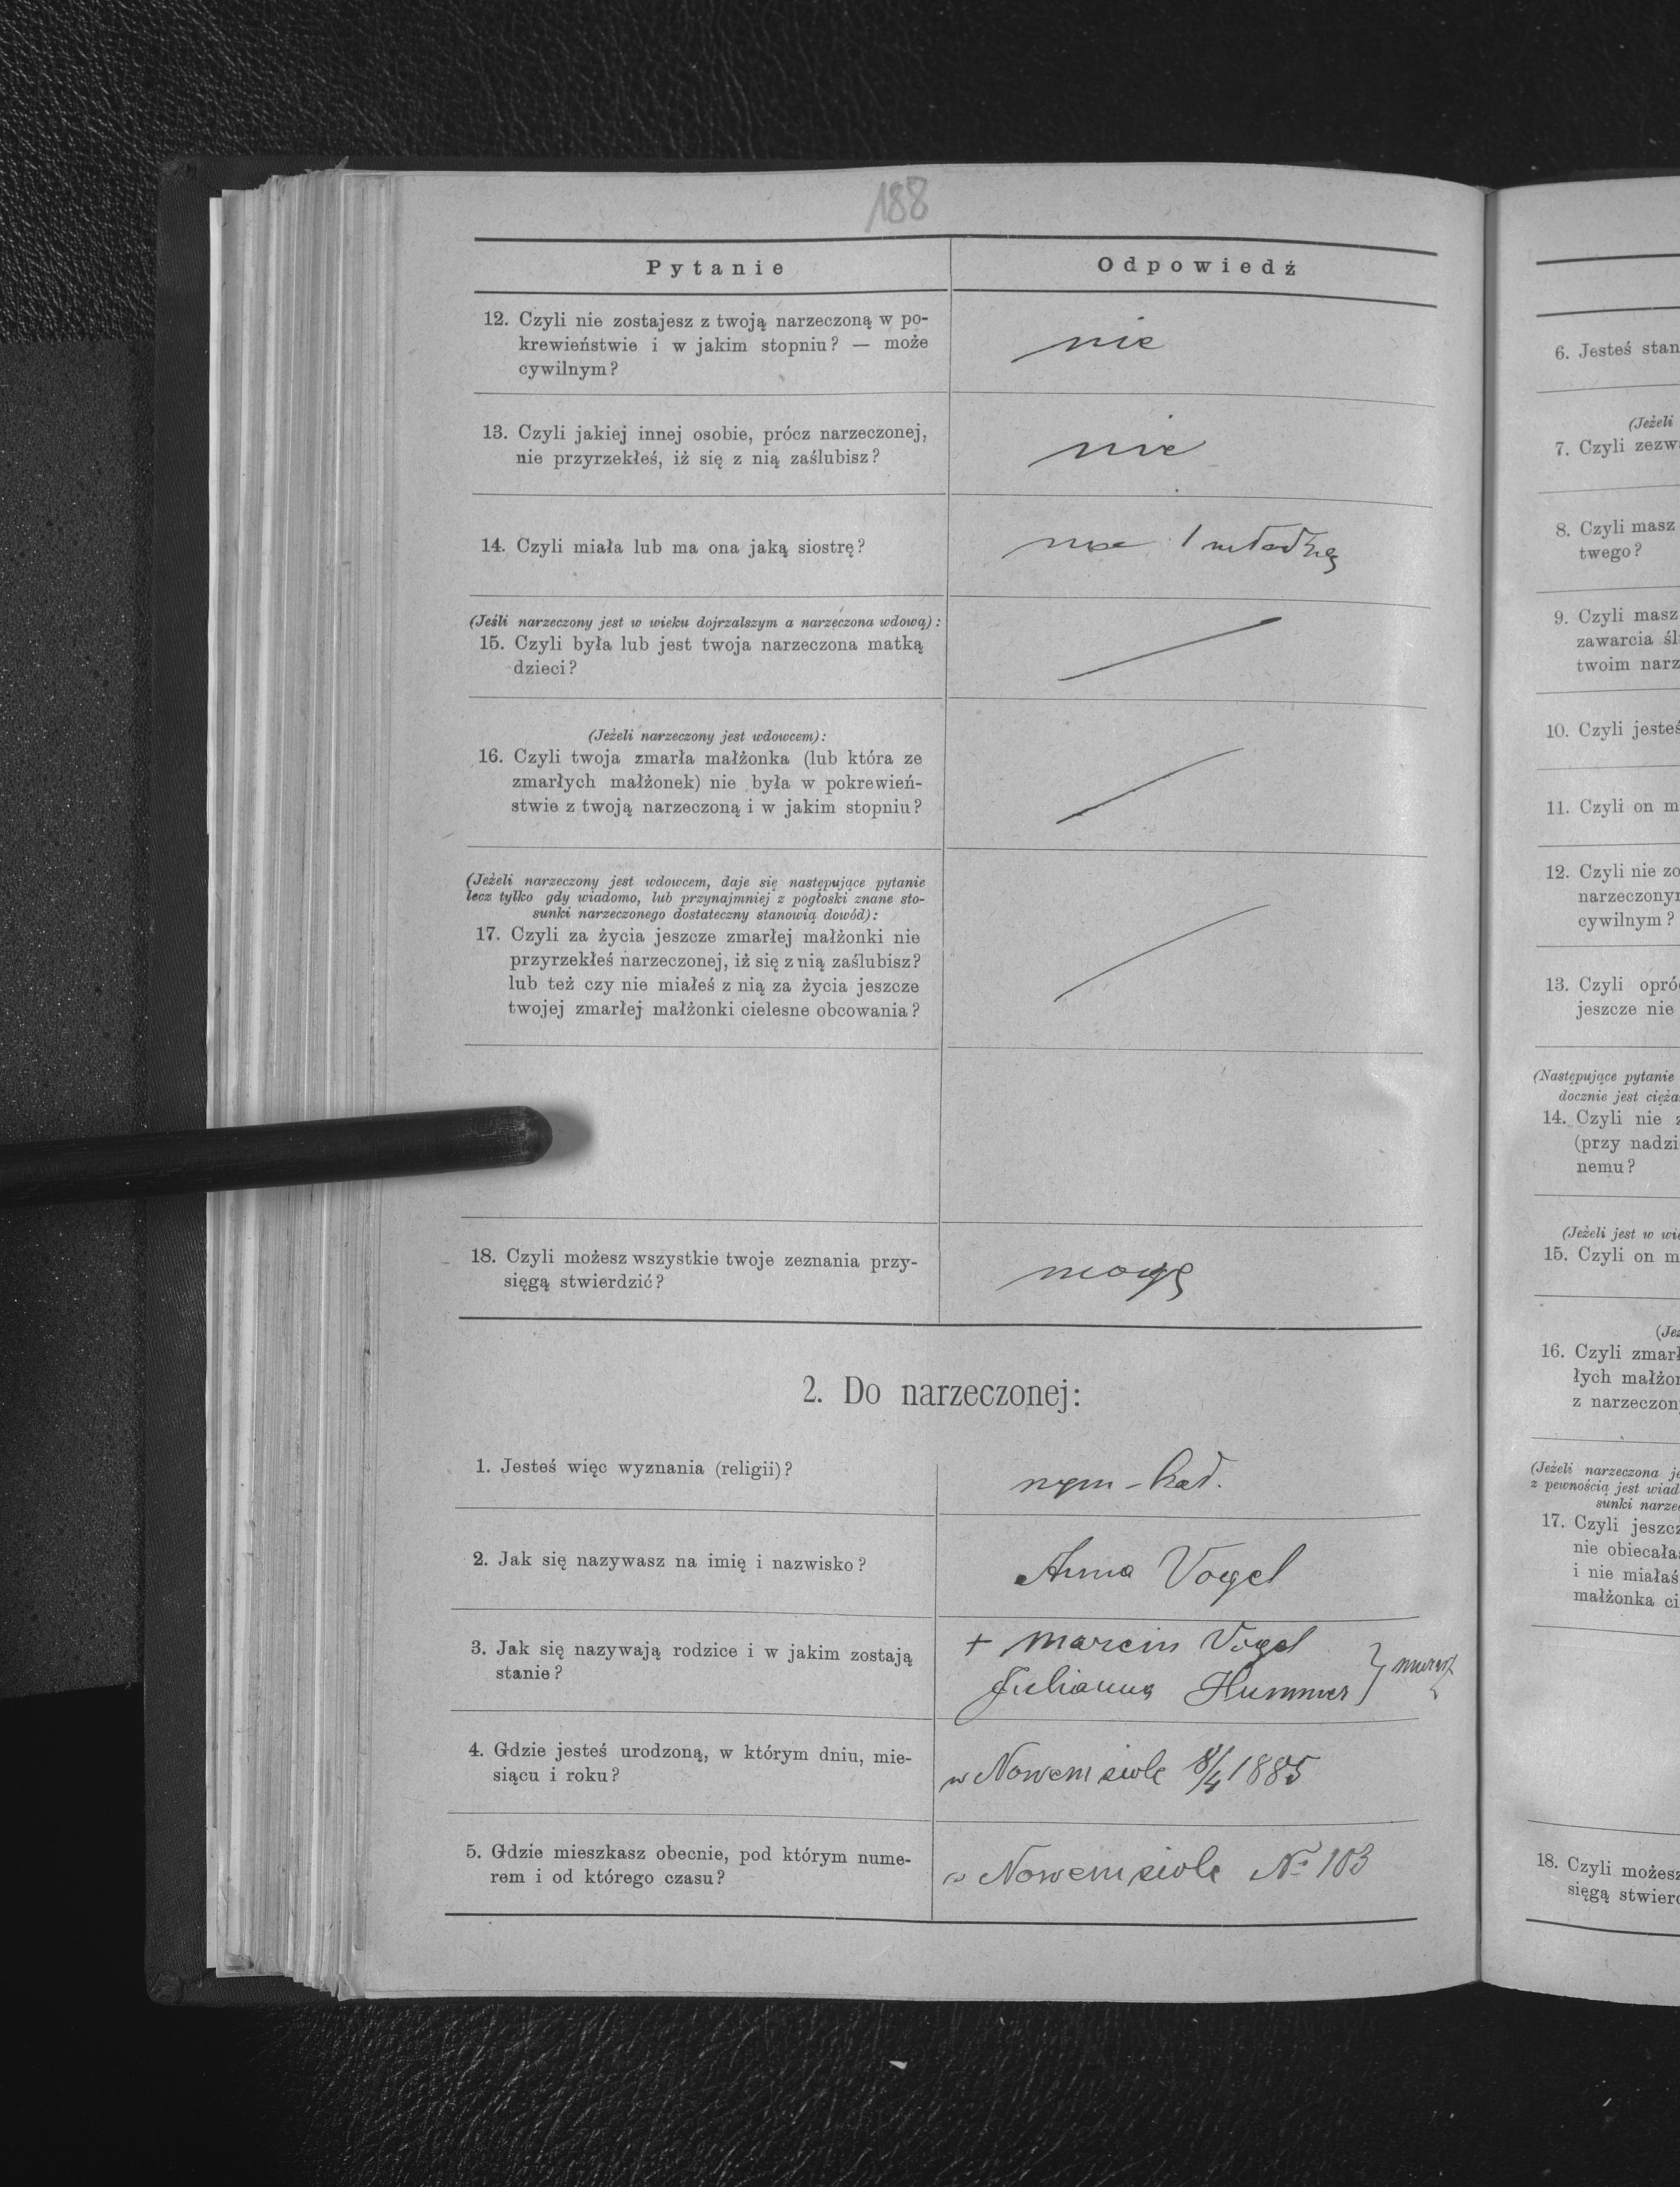 188
Pytanie
Odpowiedź
12. Czyli nie zostajesz z twoją narzeczoną w po-
krewieństwie i w jakim stopniu? — może
cywilnym?
nie
13. Czyli jakiej innej osobie, prócz narzeczonej,
nie przyrzekłeś, iż się z nią zaślubisz?
nie
14. Czyli miała lub ma ona jaką siostrę?
1 młodszą
(Jeśli narzeczony jest w wieku dojrzalszym a narzeczona wdową):
15. Czyli była lub jest twoja narzeczona matką
dzieci?
(Jeżeli narzeczony jest wdowcem):
16. Czyli twoja zmarła małżonka (lub która ze
zmarłych małżonek) nie była w pokrewień-
stwie z twoją narzeczoną i w jakim stopniu?
(Jeżeli narzeczony jest wdowcem, daje się następujące pytanie
lecz tylko gdy wiadomo, lub przynajmniej z pogłoski znane sto-
sunki narzeczonego dostateczny stanowią dowód):
17. Czyli za życia jeszcze zmarłej małżonki nie
przyrzekłeś narzeczonej, iż się z nią zaślubisz?
lub też czy nie miałeś z nią za życia jeszcze
twojej zmarłej małżonki cielesne obcowania?
18. Czyli możesz wszystkie twoje zeznania przy-
sięgą stwierdzić?
mogę
2. Do narzeczonej:
1. Jesteś więc wyznania (religii)?
rzym-kat.
2. Jak się nazywasz na imię i nazwisko?
Anna Vogel
3. Jak się nazywają rodzice i w jakim zostają
stanie?
+ Marcin Vogel
Julianna Hummer
4. Gdzie jesteś urodzoną, w którym dniu, mie-
siącu i roku?
w Nowem siole 8/4 1885
5. Gdzie mieszkasz obecnie, pod którym nume-
rem i od którego czasu?
w Nowem siole № 103
6. Jesteś stan
(Jeżeli
7. Czyli zezw
8. Czyli masz
twego?
9. Czyli masz
zawarcia śl
twoim narz
10. Czyli jesteś
11. Czyli on m
12. Czyli nie zo
narzeczony
cywilnym?
13. Czyli opró
jeszcze nie
(Następujące pytanie
docznie jest cięża
14. Czyli nie z
(przy nadzi
nemu?
(Jeżeli jest w wie
15. Czyli on m
(Jeż
16. Czyli zmarł
łych małżon
z narzeczon
(Jeżeli narzeczona je
z pewnością jest wiad
sunki narze
17. Czyli jeszcz
nie obiecała
i nie miałaś
małżonka ci
18. Czyli możesz
sięgą stwierd